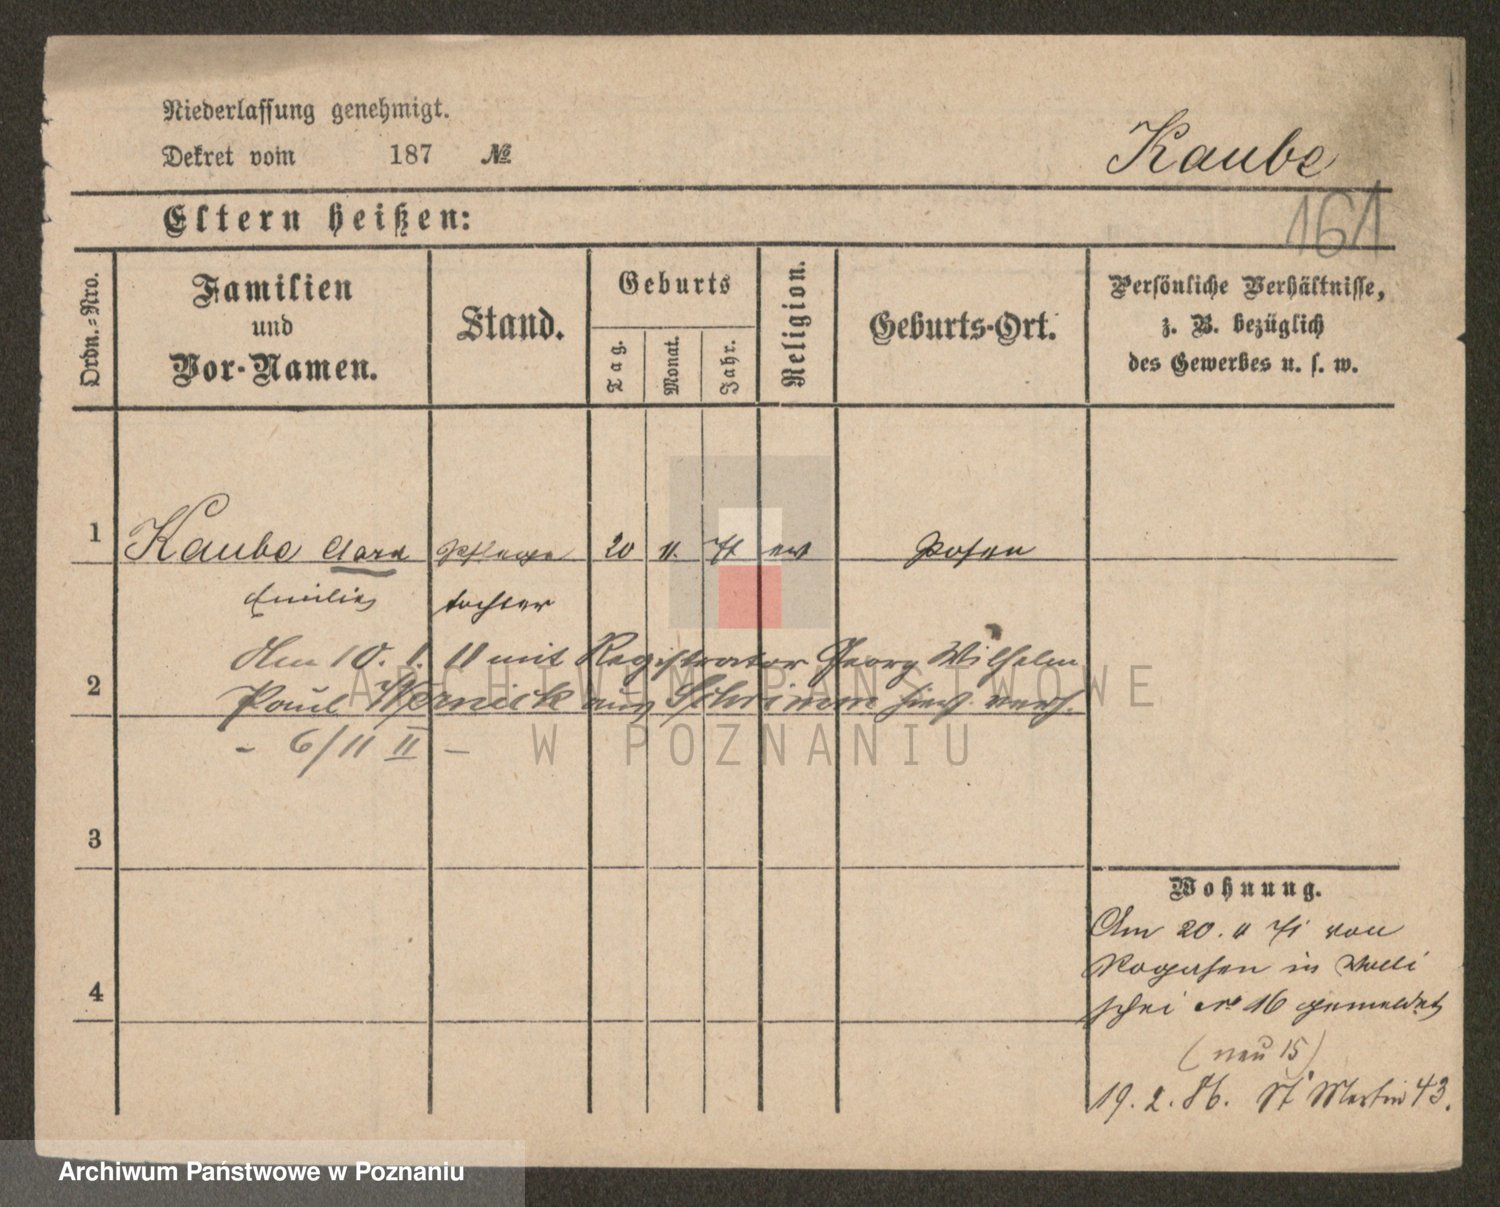 Niederlassung genehmigt.
Dekret vom 187 №
Kaube
161
Eltern heißen:
Ordn.-Nro.
Familien
und
Vor-Namen.
Stand.
Geburts
Tag.
Monat.
Jahr.
Religion.
Geburts-Ort.
Persönliche Verhältnisse,
z. B. bezüglich
des Gewerbes u. s. w.
1 Kaube Clara Pflege 20 11. 71 ev Posen
Emilie tochter
Am 10. 1. 11 mit Registrator Georg Wilhelm
2 Paul Wernick aus Schrimm hies. verh.
- 6/11 II -
3
4
Wohnung.
Am 20. 11 71 von
Rogasen in Walli
schei No 16 gemeldet
(neu 15)
19. 2. 86. St Martin 43.
ARCHIWUM PAŃSTWOWE
W POZNANIU
Archiwum Państwowe w Poznaniu